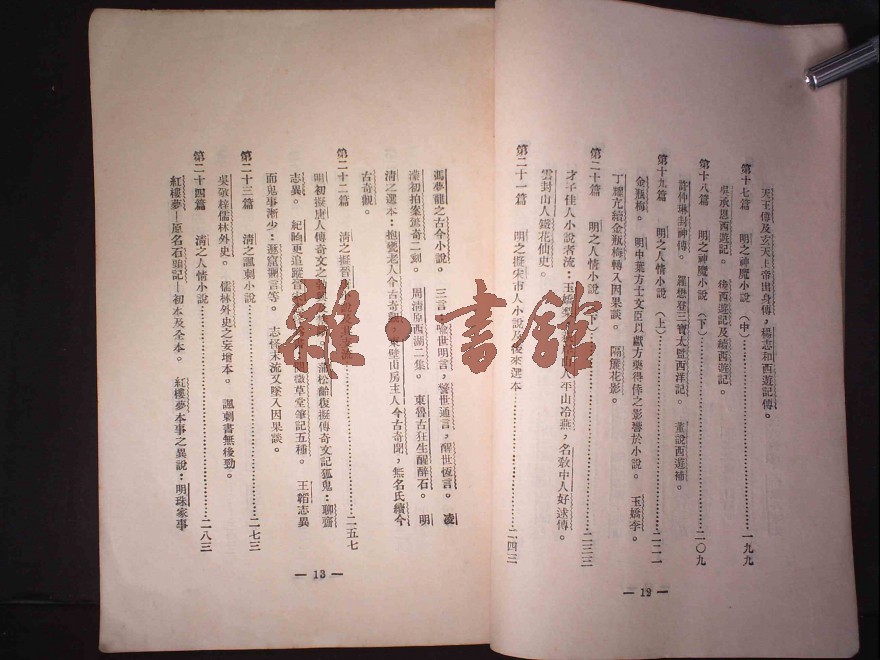 天王傳及玄天上帝出身傳，楊志和西遊記傳。
第十七篇　明之神魔小說（中）…………一九九
吳承恩西遊記。　後西遊記及續西遊記。
第十八篇　明之神魔小說（下）…………二〇九
許仲琳封神傳。　羅懋登三寶太監西洋記。　董說西遊補。
第十九篇　明之人情小說（上）…………二二一
金瓶梅。　明中葉方士文臣以獻方藥得倖之影響於小說。　玉嬌李。
丁耀亢續金瓶梅轉入因果談。　隔簾花影。
第二十篇　明之人情小說（下）…………二三三
才子佳人小說者流：玉嬌梨，　人平山冷燕，名敎中人好逑傳。
雲封山人鐵花仙史。
第二十一篇　明之擬宋市人小說及後來選本…………二四三
— 12 —
馮夢龍之古今小說。　三言：喻世明言，警世通言，醒世恆言。　凌
濛初拍案驚奇二刻。　周淸原西湖二集。　東魯古狂生醉醒石。　明
淸之選本：抱甕老人今古奇觀，東壁山房主人今古奇聞，無名氏續今
古奇觀。
第二十二篇　淸之擬晉　　　　支流…………二五七
明初擬唐人傳奇文之　　　　蒲松齡復擬傳奇文記狐鬼：聊齋
志異。　紀昀更追蹤晉　　　　微草堂筆記五種。　王韜志異
而鬼事漸少：遯窟讕言等。　志怪末流又墜入因果談。
第二十三篇　淸之諷刺小說…………二七三
吳敬梓儒林外史。　儒林外史之妄增本。　諷刺書無後勁。
第二十四篇　淸之人情小說…………二八三
紅樓夢—原名石頭記—初本及全本。　紅樓夢本事之異說：明珠家事
— 13 —
雜·書館